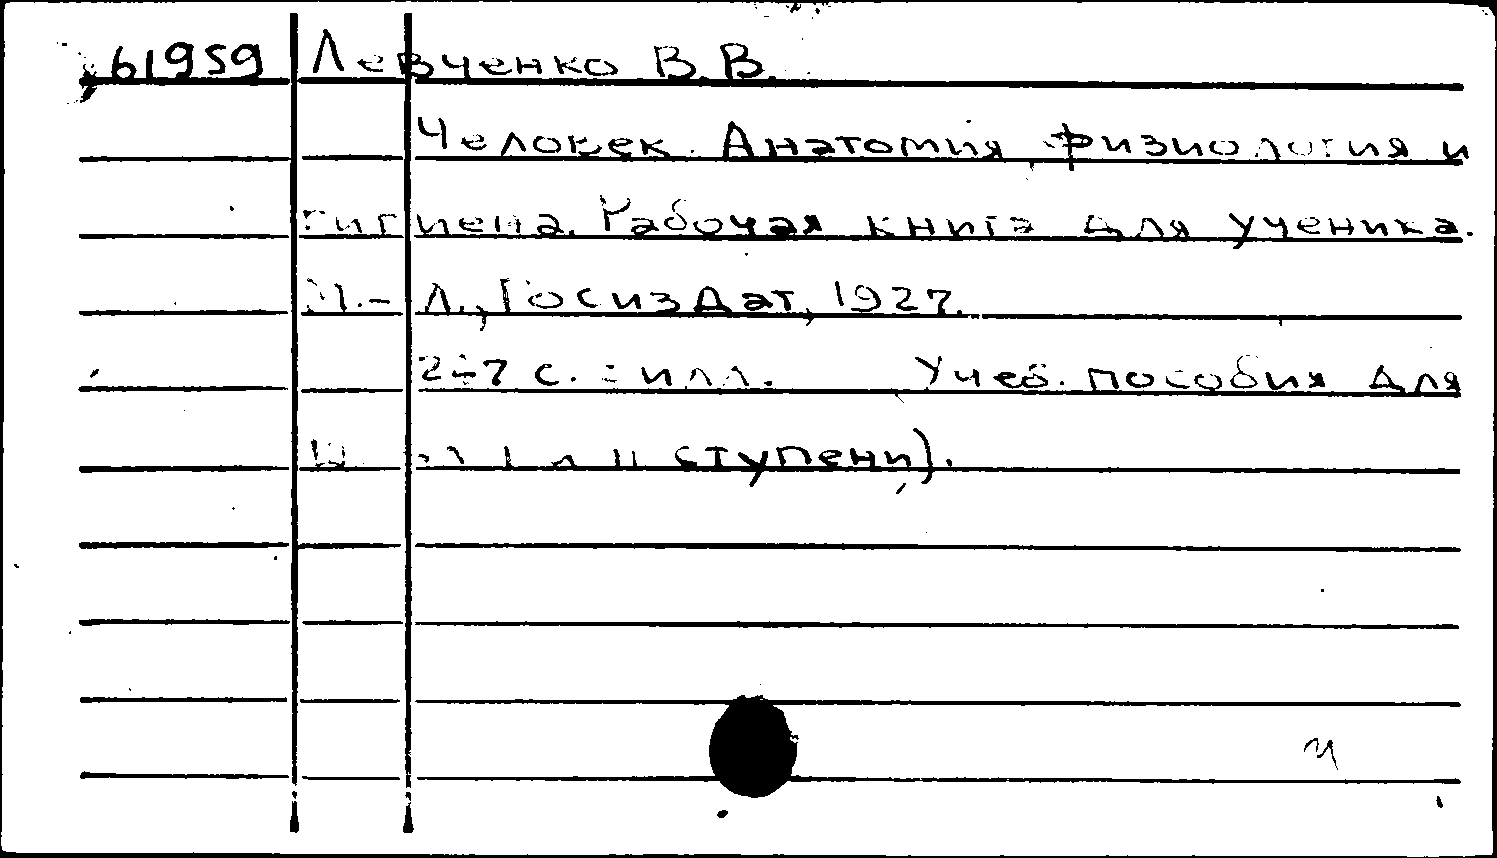 61959 Левченко В.В.
Человек. Анатомия, физиология и
гигиена. Рабочая книга для ученика.
М.-Л., Госиздат, 1927.
с. : илл. Учеб. пособия для
I и II ступени).